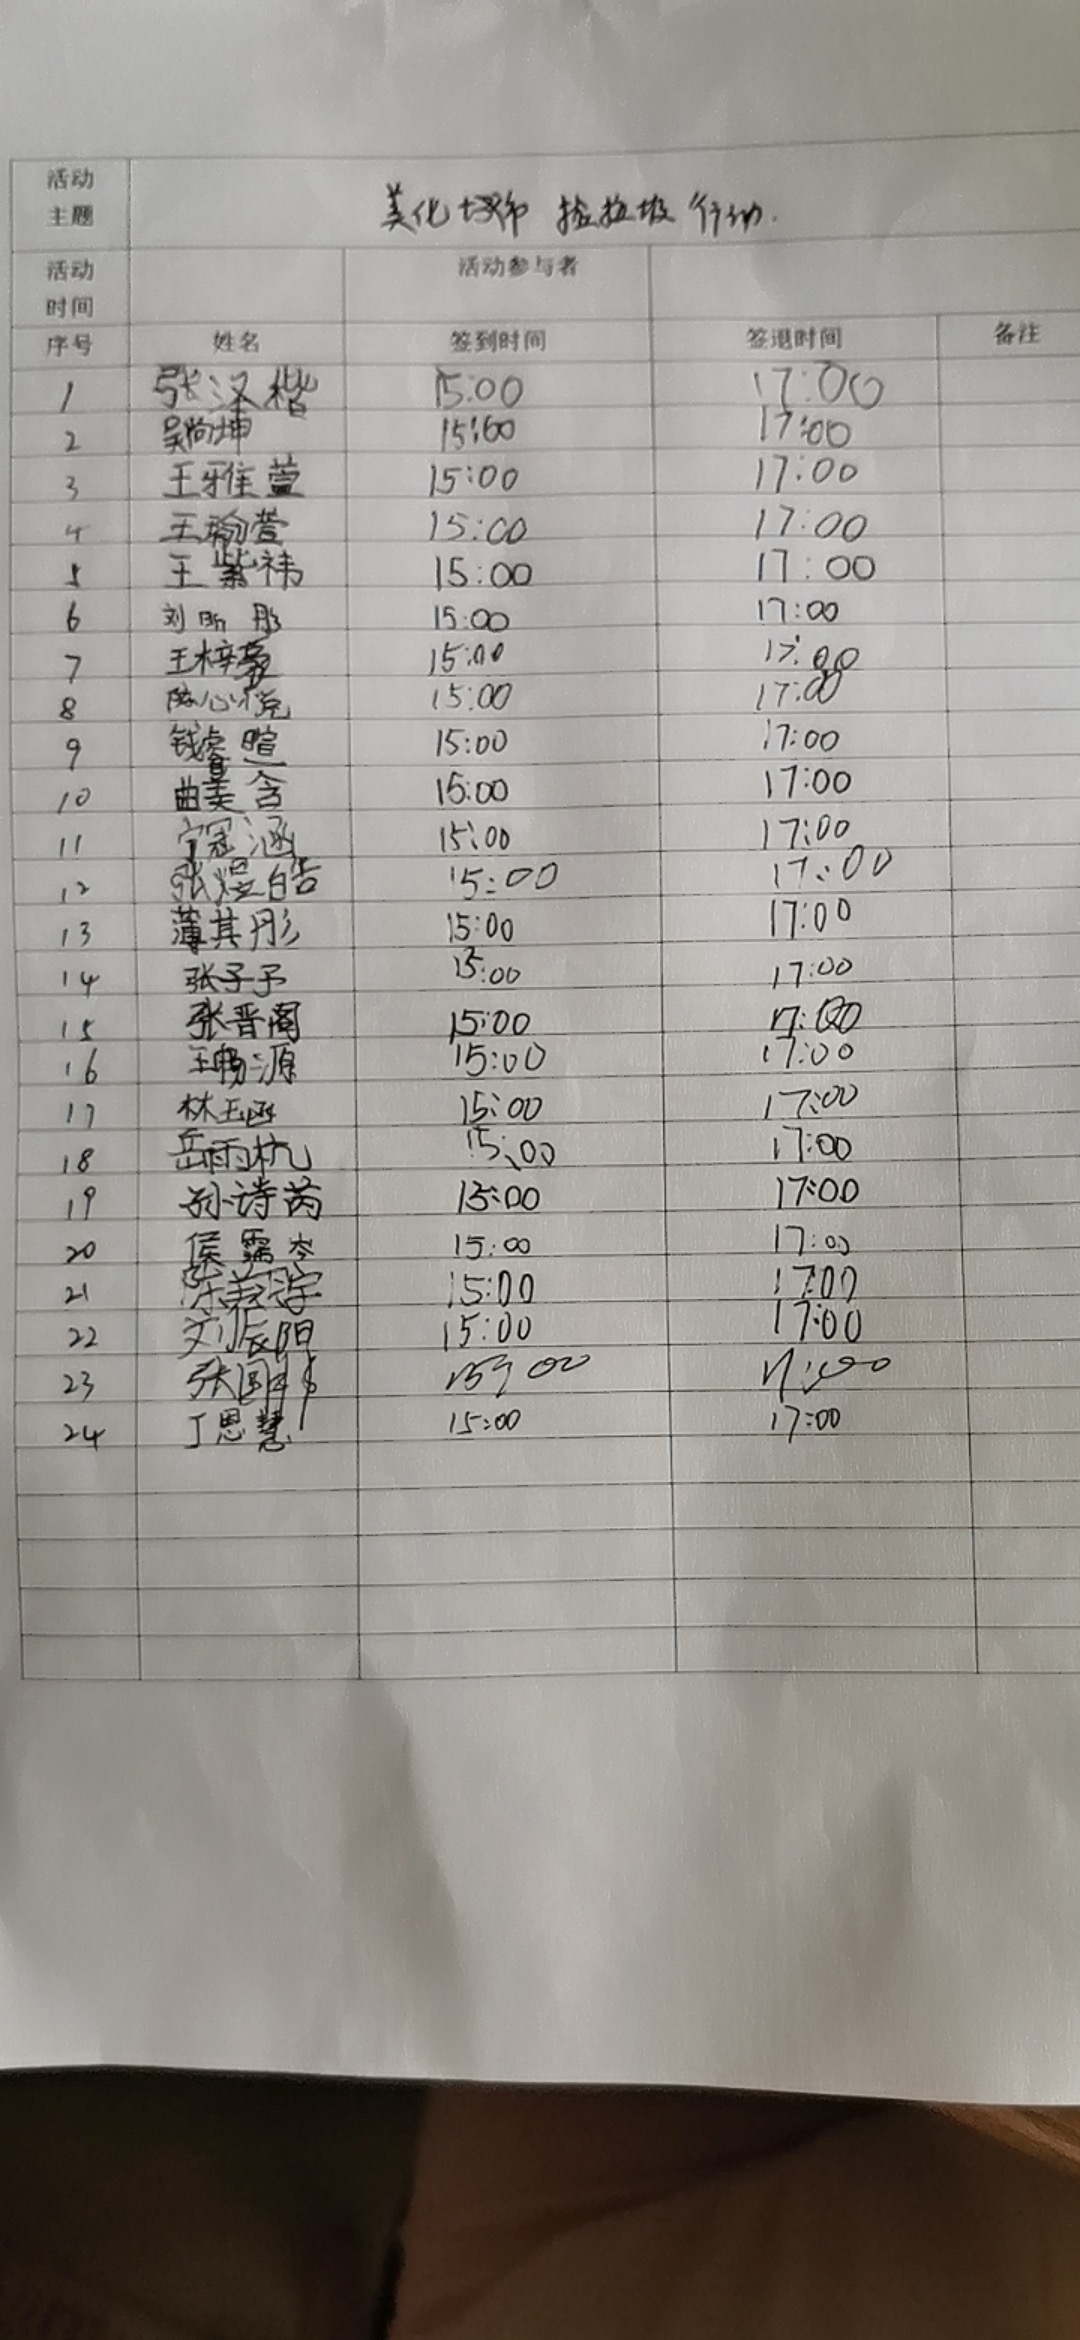 活动主题 美化城市 捡垃圾 行动.
活动时间 活动参与者
序号 姓名 签到时间 签退时间 备注
1 张汉楷 15:00 17:00
2 吴尚坤 15:00 17:00
3 王雅萱 15:00 17:00
4 王瑜萱 15:00 17:00
5 王紫祎 15:00 17:00
6 刘昕彤 15:00 17:00
7 王梓豪 15:00 17:00
8 陈心悦 15:00 17:00
9 暄 15:00 17:00
10 曲美含 15:00 17:00
11 宁冠涵 15:00 17:00
12 张煜皓 15:00 17:00
13 薄其彤 15:00 17:00
14 张子予 15:00 17:00
15 张晋阁 15:00 17:00
16 王畅源 15:00 17:00
17 林玉函 15:00 17:00
18 岳雨杭 15:00 17:00
19 孙诗芮 15:00 17:00
20 侯霈岑 15:00 17:00
21 15:00 17:00
22 刘辰阳 15:00 17:00
23 张国 15:00 17:00
24 丁思慧 15:00 17:00